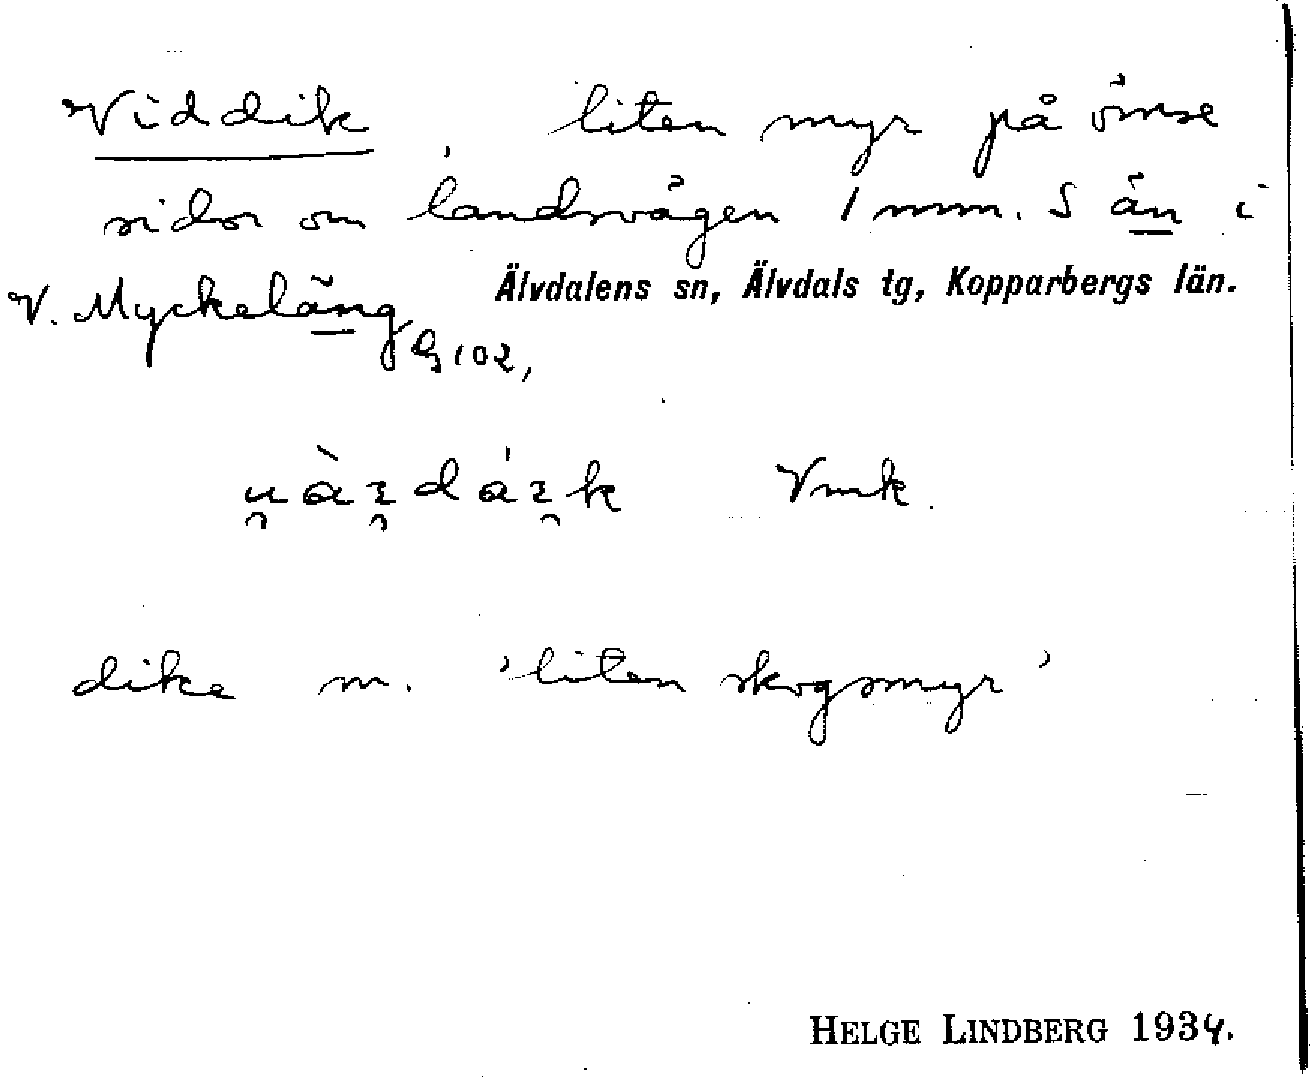 Viddik, liten myr på ömse
sidor om landsvägen 1 mm. S än i
V. Myckeläng G 102,
Älvdalens sn, Älvdals tg, Kopparbergs län.
Vmk.
dike m. 'liten skogsmyr'
HELGE LINDBERG 1934.